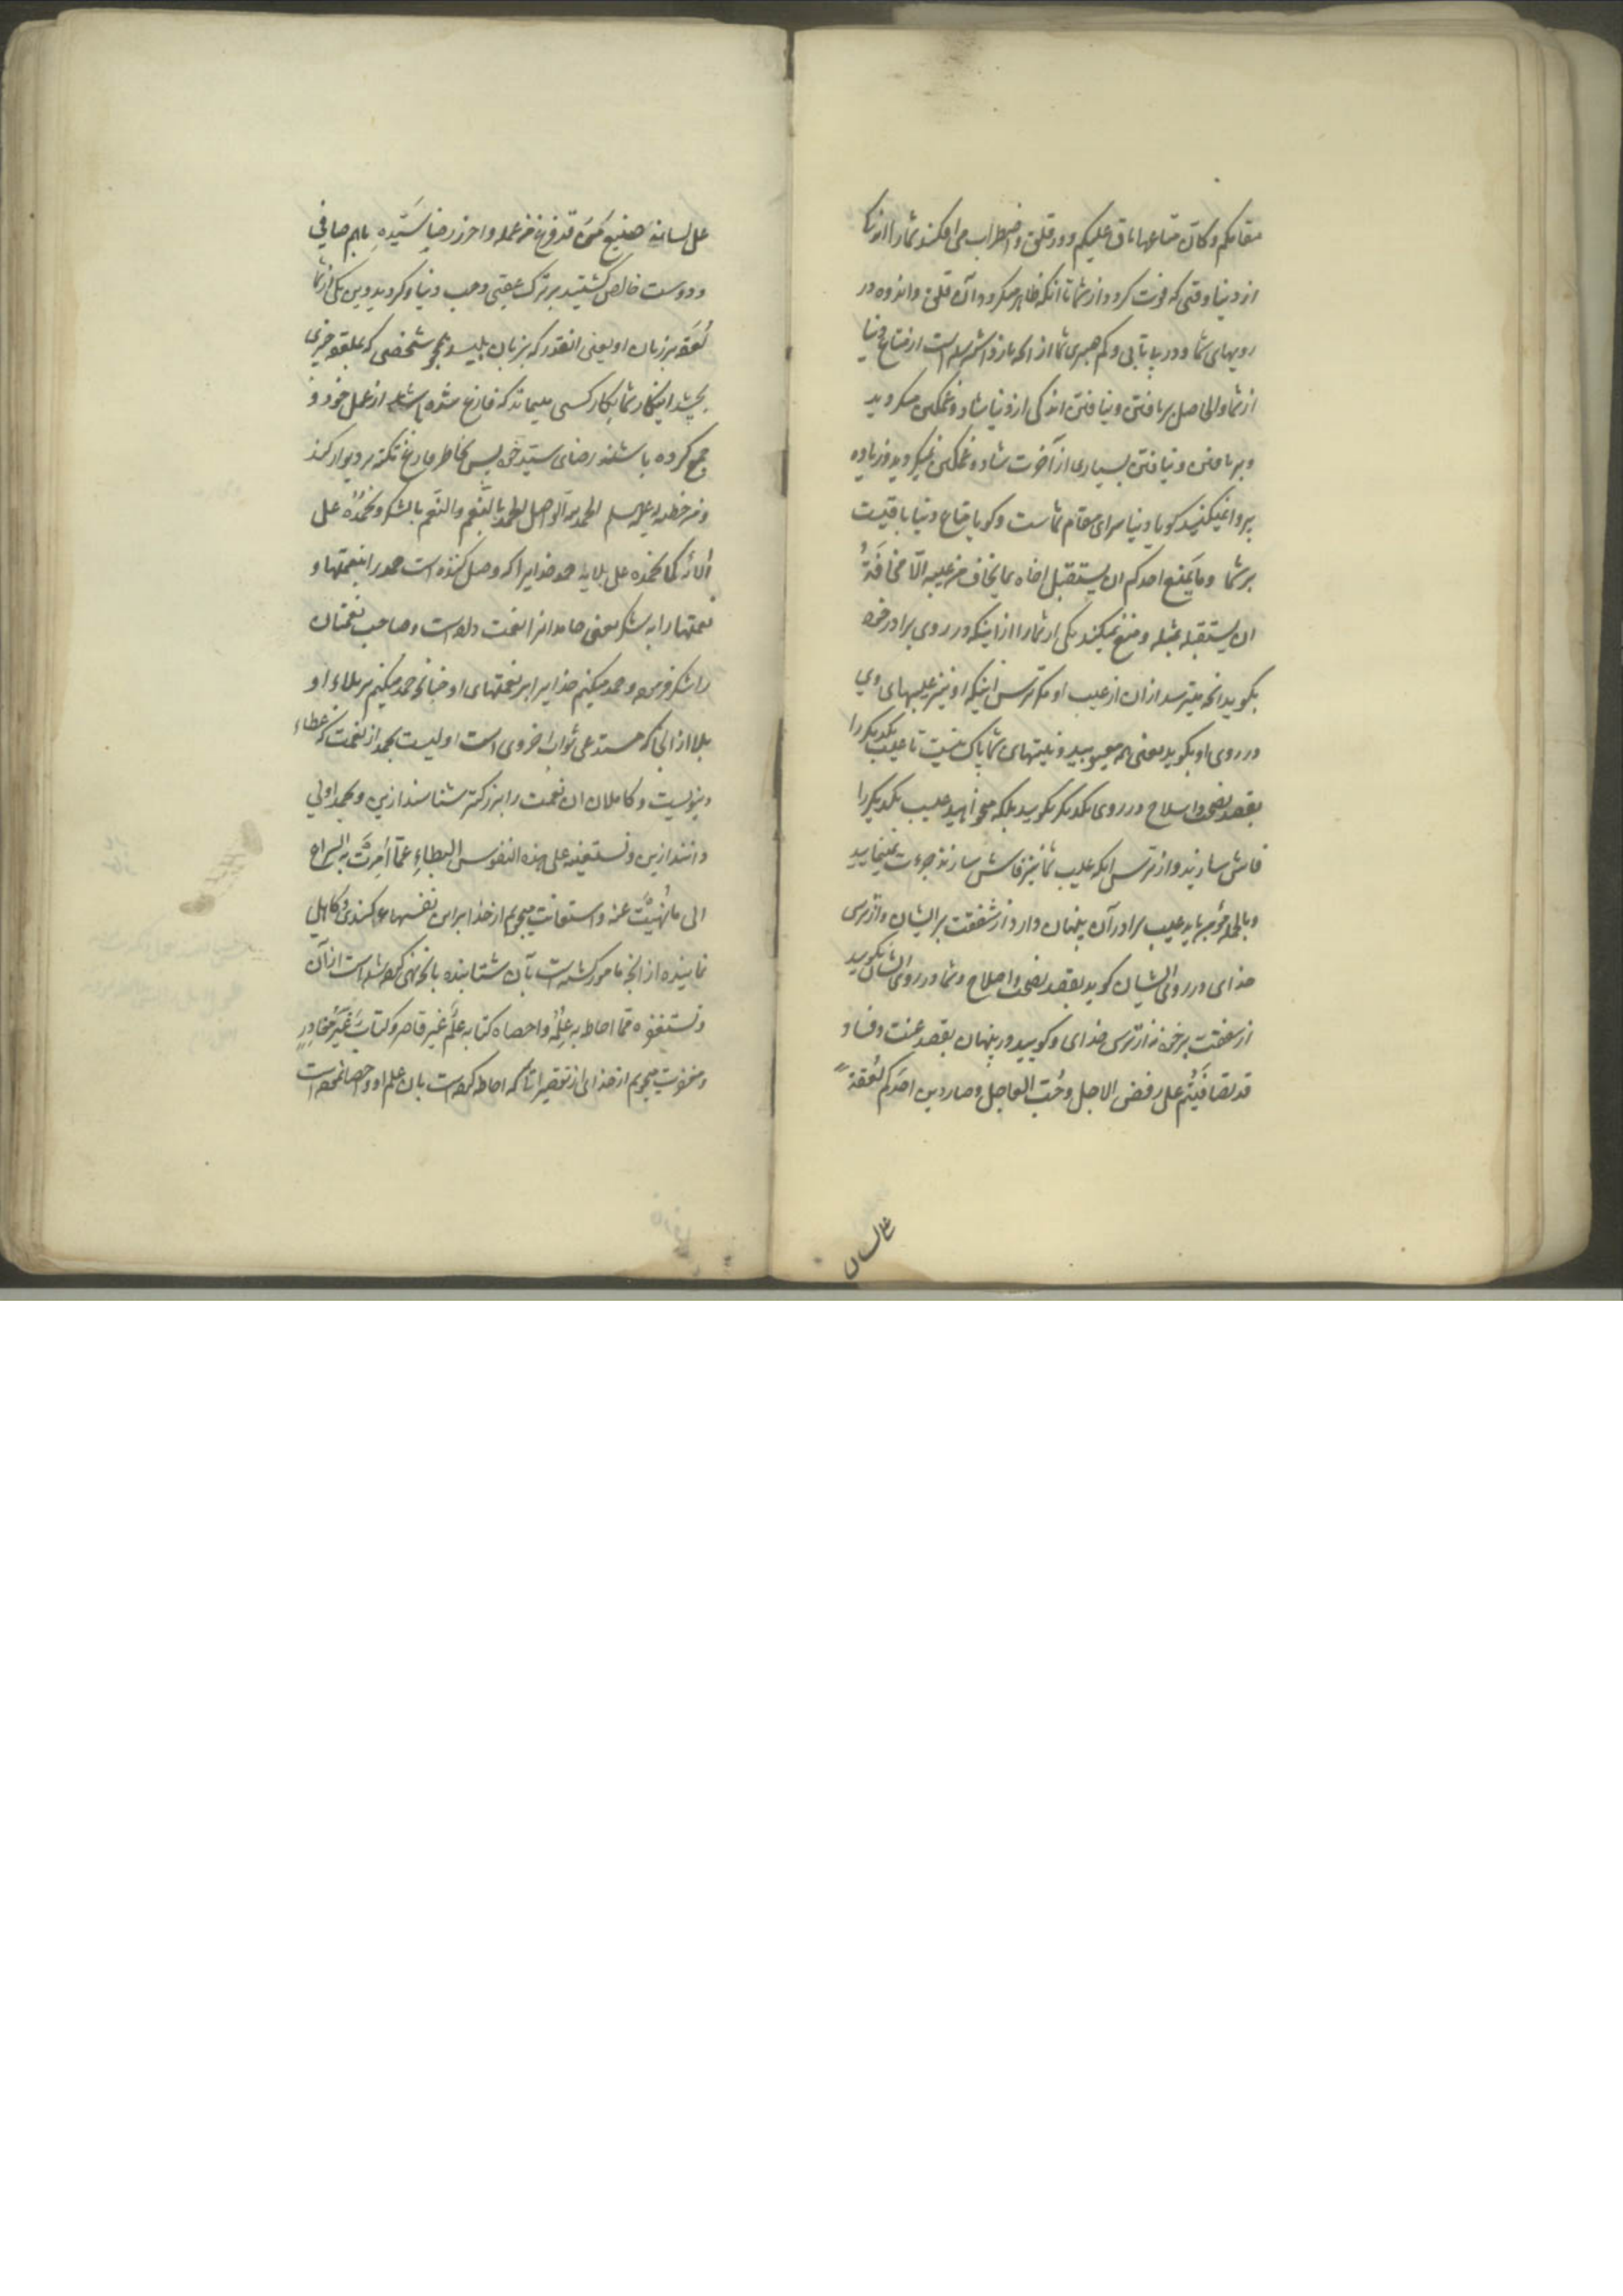 مقامکم و کان متاعها باق علیکم و در قلق و اضطراب می افکند شمارا اندک
از دنیا وقتی که فوت کردد از شما تا انکه ظاهر میکردد آن قلق و اندوه در
رویهای شما و در بیتابی و کم صبری شما از انچه باز داشته شده است از متاع دنیا
از شما و الحاصل بر یافتن و نیافتن اندکی از دنیا شاد و غمکین میکردید
و بر یافتن و نیافتن بسیاری از آخرت شاد و غمکین نمیکردید و زیاده
پروا نمیکنید کویا دنیا سرای مقام شماست و کویا متاع دنیا باقیست
بر شما و ما یمنع احدکم ان یستقبل اخاه بما یخاف من عیبه الّا مخافَةُ
ان یستقبله بمثله و منع نمیکند یکی از شمارا از اینکه در روی برادر خود
بکوید انچه میترسد از ان از عیب او مکر ترس اینکه او نیز عیبهای وی
در روی او بکوید یعنی همه معیوبید و نیتهای شما پاک نیست تا عیب یکدیکر را
بقصد نصح و اصلاح در روی یکدیکر بکویید بلکه میخواهید عیب یکدیکر را
فاش سازید و از ترس انکه عیب شما نیز فاش سازند جرءت نمینمایید
و بالجمله مؤمن باید عیب برادر آن پنهان دارد از شفقت بر ایشان و از ترس
خدای در روی ایشان کوید بقصد نصح و اصلاح و شما در روی ایشان نکویید
از شفقت بر خود نه از ترس خدای و کویید در پنهان بقصد عنت و فساد
قد تصافَیتُم علی رفض الاجل و حُبّ العاجل و صار دین احدکم لُعقةً
علی لسانه
علی لسانه صنیع مَن قد فرغ من عمله و احرز رضا سَیّدِهِ باهم صافی
و دوست خالص کشتید بر ترک عقبی و حب دنیا و کردید دین یکی از شما
لُعقه بر زبان او یعنی انقدر که بزبان بلیسد همچو شخصی که بملعقه چیزی
بچشد اینکار شما بکار کسی میماند که فارغ شده باشد از عمل خود و
جمع کرده باشد رضای سید خود پس بخاطر فارغ تکیه بر دیوار کند
و من خطبه له علیه السلم الحمد لله الواصل الحمد بالنِّعَم و النِّعَم بالشکر و نحمدُهُ علی
آلائه کما نحمده علی بلائه حمد خدایرا که وصل کننده است حمد را بنعمتها و
نعمتها را به شکر یعنی حامدانرا نعمت داده است و صاحب نعمتان
را شکر فرموده و حمد میکنیم خدایرا بر نعمتهای او چنانچه حمد میکنیم بر بلاء او
بلا از انجا که مستدعی ثواب اخروی است اولیست بحمد از نعمت که عطاء
دنیویست و کاملان ان نعمت را بزرکتر شناسند ازین و بحمد اولی
دانند ازین و نستعینه علی هذه النفوس البِطاءِ عمّا اُمِرَت به السراع
الی ما نُهِیَت عنه و استعانت میجویم از خدا بر این نفسهای کندی و کاهلی
نماینده از انچه مامور کشته است بآن شتابنده بانچه نهی کرده شده است از آن
و نستغفره ممّا احاط به عِلمُه و احصاه کتابه علمٌ غیر قاصر و کتابٌ غَیرُ مُغادِرٍ
و مغفرت میجویم از خدای از تقصیراتی که احاطه کرده است بان علم او و احصا نموده است